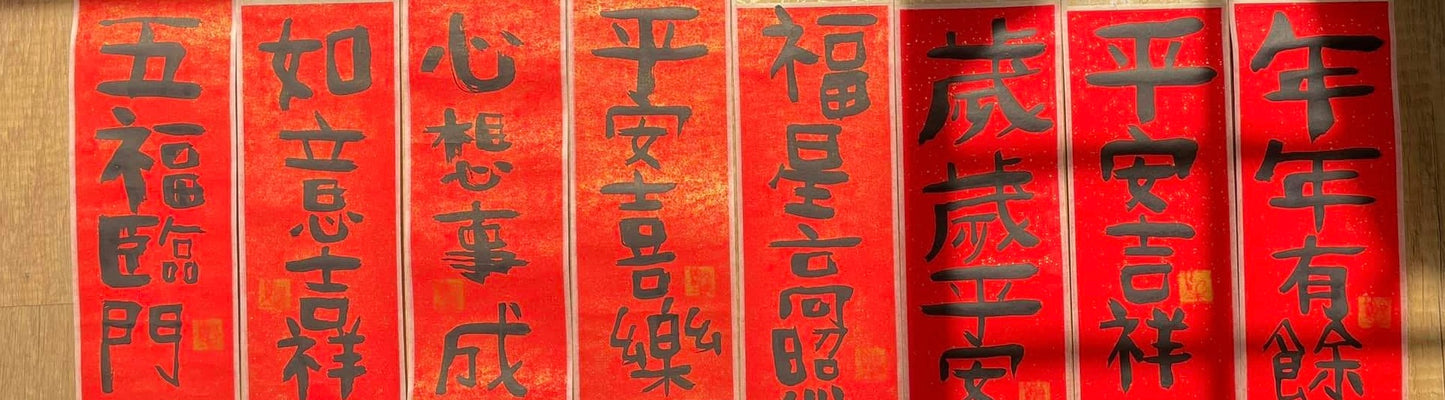 年年有餘
平安吉祥
歲歲平安
福星高照
平安喜樂
心想事成
如意吉祥
五福臨門